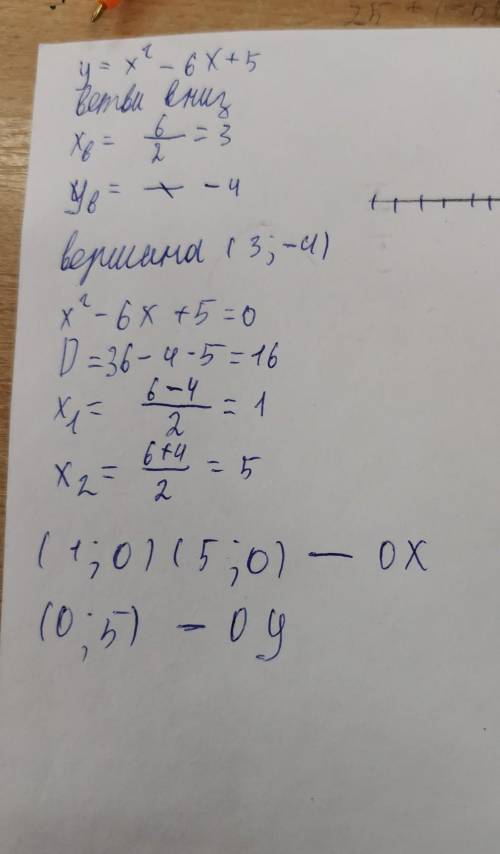 y = x² - 6x + 5
ветви вниз
xв = 6/2 = 3
yв = -4
вершина (3; -4)
x² - 6x + 5 = 0
D = 36 - 4 · 5 = 16
x₁ = (6-4)/2 = 1
x₂ = (6+4)/2 = 5
(1; 0) (5; 0) — OX
(0; 5) — Oy